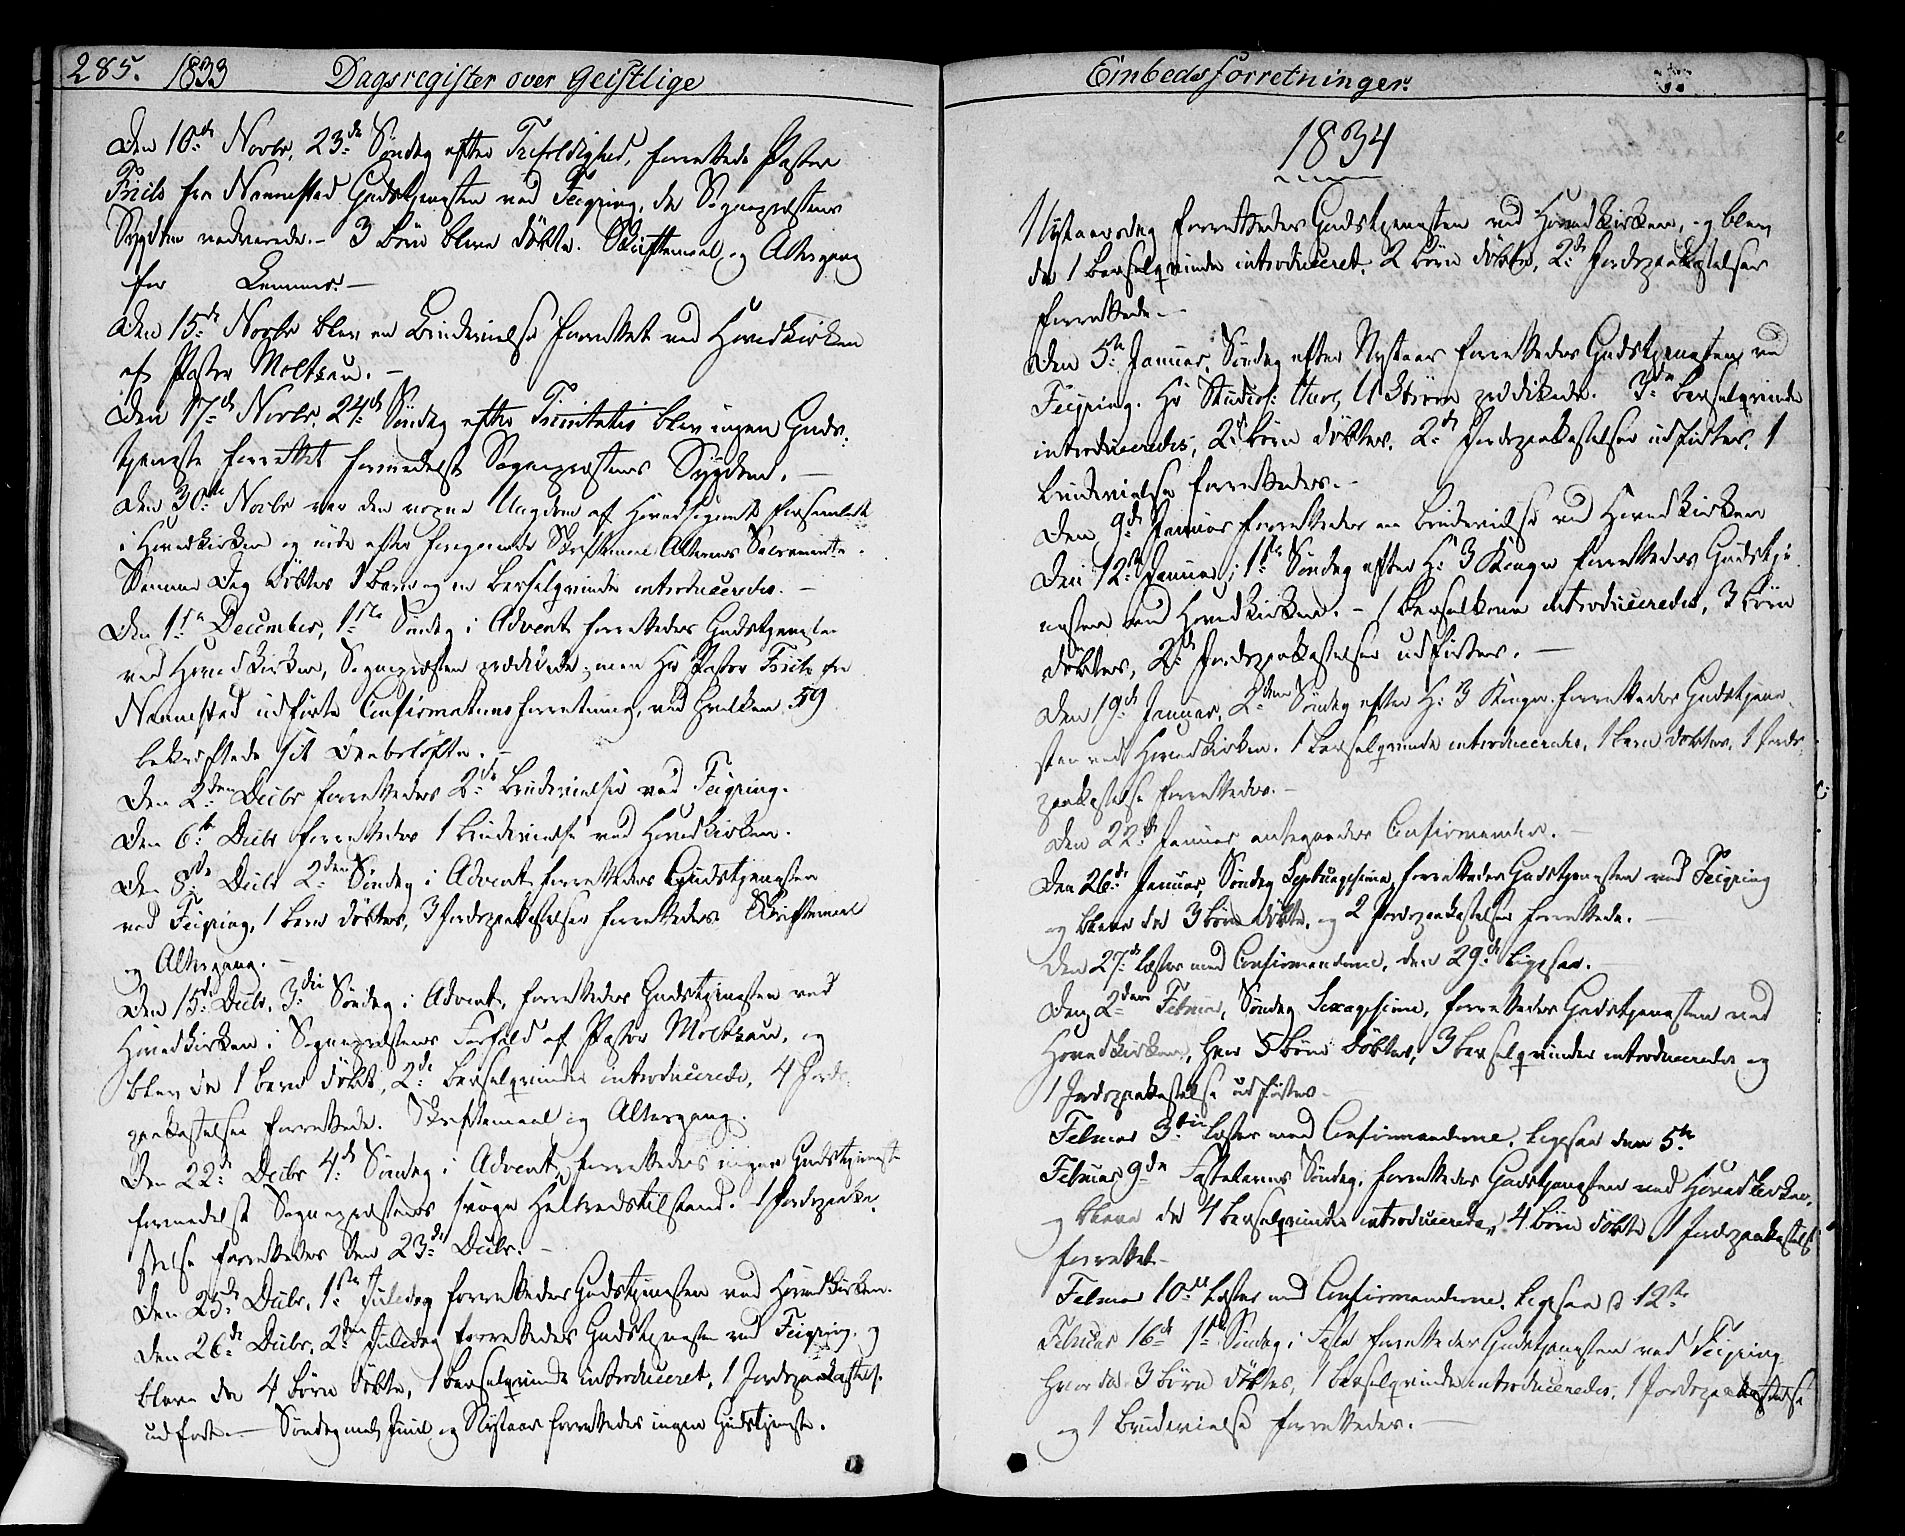 285. 1833 Dagsregister over Geistlige
Den 10de Novbr, 23de Søndag efter Trefoldighed, forrettede Pastor
Friis fra Nannestad Gudstjenesten ved Feiring, da Sognepræstens
Sygdom vedvarede. - 3 Børn bleve døbte. Skriftemaal og Altergang
for Lemmer. -
Den 15de Novbr blev en Brudevielse forrettet ved Hovedkirken
af Pastor Moltzau. -
Den 17de Novbr. 24de Søndag efter Trinitatis blev ingen Guds-
tjeneste forrettet formedelst Sognepræstens Sygdom. -
Den 30te Novbr var den unge Ungdom af Hovedsognet forsamlet
i Hovedkirken og nøde efter foregaaende Skriftemaal Alterens Sacramente.
Samme Dag døbtes 1 Barn og en Barselqvinde introduceredes. -
Den 1ste December, 1ste Søndag i Advent forrettedes Gudstjenesten
ved Hovedkirken, Sognepræsten prædikede, men Hr Pastor Friis fra
Nannestad udførte Confirmationsforretning, ved hvilken 59
bekræftede sit Daabsløfte. -
Den 2den Decbr forrettedes 2de Brudevielser ved Feiring.
Den 6te Decbr forrettedes 1 Brudevielse ved Hovedkirken.
Den 8de Decbr 2den Søndag i Advent forrettedes Gudstjenesten
ved Feiring, 1 Barn døbtes, 3 Jordspaakastelser forrettedes. Skriftemaal
og Altergang. -
Den 15de Decbr. 3die Søndag i Advent, forrettedes Gudstjenesten ved
Hovedkirken i Sognepræstens Forfald af Pastor Moltzau, og
blev da 1 Barn døbt, 2de Barselqvinder introducerede, 4 Jords-
paakastelser forrettede. Skriftemaal og Altergang.
Den 22de Decbr 4de Søndag i Advent, forrettedes ingen Gudstjeneste
formedelst Sognepræstens svage Helbredstilstand. 1 Jordspaaka-
stelse forrettedes den 23de Decbr. -
Den 25de Decbr, 1ste Juledag forrettedes Gudstjenesten ved Hovedkirken.
Den 26de Decbr, 2den Juledag forrettedes Gudstjenesten ved Feiring, og
bleve da 4 Børn døbte, 1 Barselqvinde introduceret, 1 Jordspaakastelse
udført. - Søndag mellem Juul og Nytaar forrettedes ingen Gudstjeneste.
Embedsforretninger.
1834
Nytaarsdag forrettedes Gudstjenesten ved Hovedkirken, og blev
da 1 Barselqvinde introduceret, 2 Børn døbte, 2de Jordspaakastelser
forrettede. -
Den 5te Januar, Søndag efter Nytaar forrettedes Gudstjenesten ved
Feiring. Hr Studios: prædikede. 3de Barselqvinder
introduceredes, 2de Børn døbtes. 2de Jordspaakastelser udførtes, 1
Brudevielse forrettedes. -
Den 9de Januar forrettedes en Brudevielse ved Hovedkirken
Den 12te Januar, 1ste Søndag efter H: 3 Konger forrettedes Gudstje-
nesten ved Hovedkirken. - 1 Barselkone introduceredes, 3 Børn
døbtes, 2de Jordspaakastelser udførtes. -
Den 19de Januar, 2den Søndag efter H: 3 Konger forrettedes Gudstjene-
sten ved Hovedkirken. 1 Barselqvinde introduceredes, 1 Barn døbtes, 1 Jords-
paakastelse forrettedes. -
Den 22de Januar antegnedes Confirmander. -
Den 26de Januar, Søndag Septuagesima, forrettedes Gudstjenesten ved Feiring
og bleve da 3 Børn døbte, og 2 Jordspaakastelser forrettede. -
Den 27de læstes med Confirmanderne, den 29de ligesaa. -
Den 2den Februar, Søndag Sexagesima, forrettedes Gudstjenesten ved
Hovedkirken, hvor 5 Børn døbtes, 3 Barselqvinder introduceredes og
1 Jordspaakastelse udførtes. -
Februar 3die læstes med Confirmanderne, ligesaa den 5te
Februar 9de Fastelavns Søndag, forrettedes Gudstjenesten ved Hovedkirken,
og bleve da 4 Barselqvinder introducerede, 4 Børn døbte, 1 Jordspaakastelse
forrettet. -
Februar 10de læstes med Confirmanderne, ligesaa d 12te
Februar 16de 1ste Søndag i Faste forrettedes Gudstjenesten ved Feiring
hvor da 3 Børn døbtes, 1 Barselqvinde introduceredes, 1 Jordspaakastelse
og 1 Brudevielse forrettedes. -